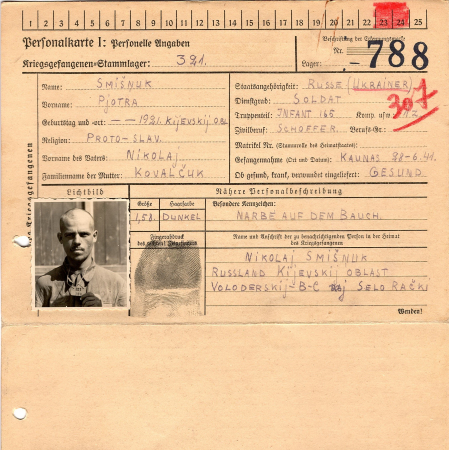 1 2 3 4 5 6 7 8 9 10 11 12 13 14 15 16 17 18 19 20 21 22 23 24 25
Personalkarte I: Personelle Angaben
Kriegsgefangenen-Stammlager: 321.
Beschriftung der Erkennungsmarke
Nr. 788
Lager:
Name: SMIŠNUK
Vorname: PJOTRA
Geburtstag und -ort: – – 1921. KIJEVSKIJ OBL
Religion: PROTO-SLAV.
Vorname des Vaters: NIKOLAJ
Familienname der Mutter: KOVALČUK
Staatsangehörigkeit: RUSSE (UKRAINER)
Dienstgrad: SOLDAT
Truppenteil: INFANT 165 Komp. usw.:
Zivilberuf: SCHOFFER. Berufs-Gr.:
Matrikel Nr. (Stammrolle des Heimatstaates):
Gefangennahme (Ort und Datum): KAUNAS 28-6.41.
Ob gesund, krank, verwundet eingeliefert: GESUND
307
des Kriegsgefangenen
Lichtbild
Größe
Haarfarbe
1,58.
DUNKEL
Fingerabdruck
des rechten! Zeigefingers
Nähere Personalbeschreibung
Besondere Kennzeichen:
NARBE AUF DEM BAUCH.
Name und Anschrift der zu benachrichtigenden Person in der Heimat
des Kriegsgefangenen
NIKOLAJ SMIŠNUK
RUSSLAND KIJEVSKIJ OBLAST
VOLODERSKIJ-B-C RAJ SELO RAČKI
Wenden!